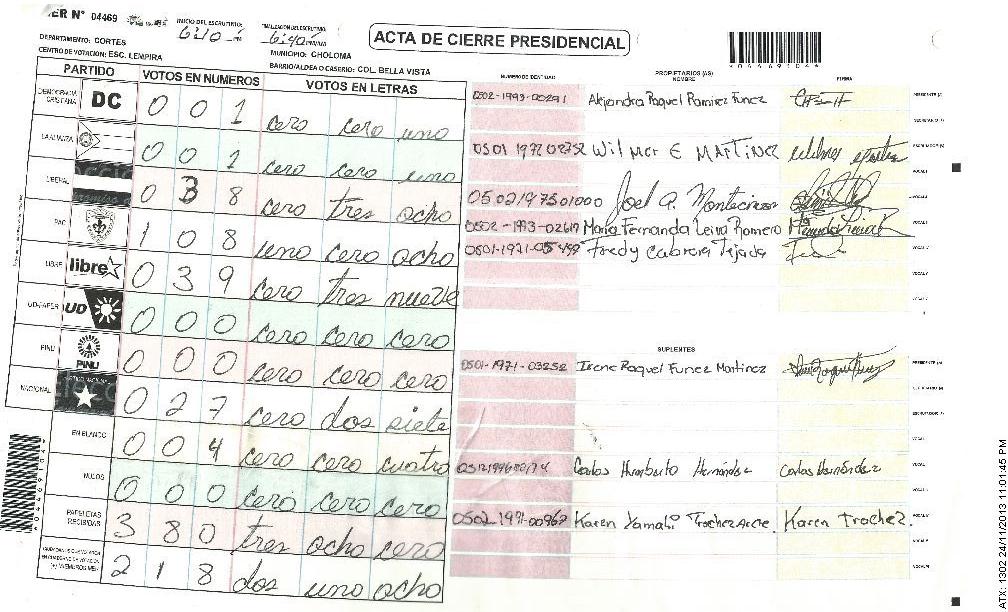 MER N° 04469
INICIO DEL ESCRUTINIO:
6:10 PM
FINALIZACION DEL ESCRUTINIO:
6:40 PM
ACTA DE CIERRE PRESIDENCIAL
DEPARTAMENTO: CORTES
MUNICIPIO: CHOLOMA
CENTRO DE VOTACION: ESC. LEMPIRA
BARRIO/ALDEA O CASERIO: COL. BELLA VISTA
PARTIDO VOTOS EN NUMEROS VOTOS EN LETRAS
DEMOCRACIA CRISTIANA DC 0 0 1 cero cero uno
LA ALIANZA 0 0 1 cero cero uno
LIBERAL 0 3 8 cero tres ocho
PAC 1 0 8 uno cero ocho
LIBRE libre 0 3 9 cero tres nueve
UD-FAPER UD 0 0 0 cero cero cero
PINU PINU 0 0 0 cero cero cero
NACIONAL 0 2 7 cero dos siete
EN BLANCO 0 0 4 cero cero cuatro
NULOS 0 0 0 cero cero cero
PAPELETAS RECIBIDAS 3 8 0 tres ocho cero
2 1 8 dos uno ocho
NUMERO DE IDENTIDAD
PROPIETARIOS (AS)
NOMBRE
FIRMA
0502-1993-00291 Alejandra Raquel Ramirez Funez PRESIDENTE (A)
SECRETARIO (A)
0501 1972 02752 Wilmer E MARTINez ESCRUTADOR (A)
VOCAL I
0502197501000 Joel A.
0502-1993-02617 Maria Fernanda Leiva Romero
0501-1971-05498 Fredy Cabrera Tejada
SUPLENTES
0501-1971-03252 Irene Raquel Funez Martinez PRESIDENTE (A)
SECRETARIO (A)
ESCRUTADOR (A)
Carlos Humberto Hernández Carlos Hernández
0502-1991-00962 Karen Yamali Karen Trochez.
ATX: 1302 24/11/2013 11:01:45 PM